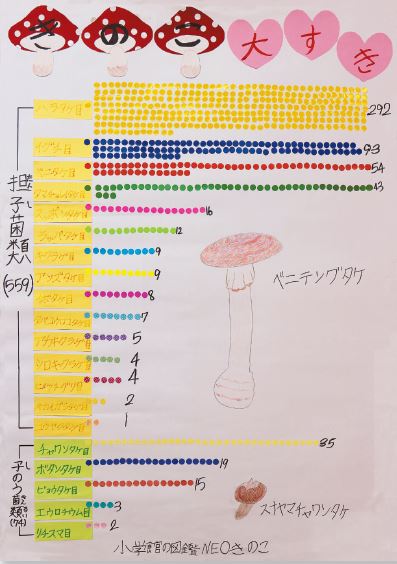 きのこ大すき
ハラタケ目 292
イグチ目 93
ベニタケ目 54
43
スッポンタケ目 16
ラッパタケ目 12
キクラゲ目 9
9
8
7
5
シロキクラゲ目 4
4
2
1
担子菌類
(559)
ベニテングタケ
チャワンタケ目 35
ボタンタケ目 19
ビョウタケ目 15
エウロチウム目 3
リチスマ目 2
子のう菌類
(74)
スナヤマチャワンタケ
小学館の図鑑NEOきのこ